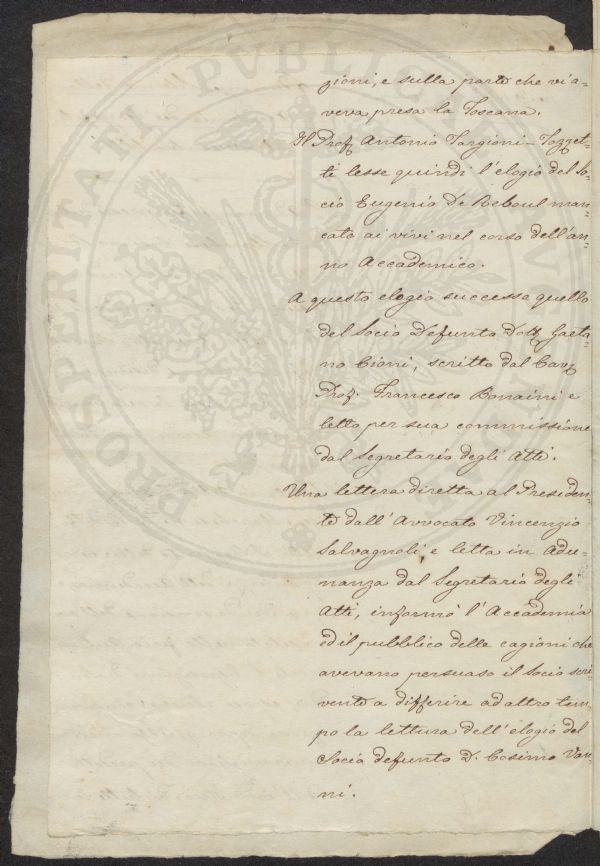 zioni, e sulla parte che vi a-
veva presa la Toscana.
Il Prof. Antonio Targioni-Tozzet-
ti lesse quindi l'elogio del So-
cio Eugenio De Reboul man-
cato ai vivi nel corso dell'an-
no Accademico.
A questo elogio successe quello
del Socio Defunto Dott. Gaeta-
no Cioni, scritto dal Cav.
Prof. Francesco Bonaini e
letto per sua commissione
dal Segretario degli Atti.
Una lettera diretta al Presiden-
te dall'Avvocato Vincenzio
Salvagnoli, e letta in Adu-
nanza dal Segretario degli
Atti, informò l'Accademia
ed il pubblico delle cagioni che
avevano persuaso il Socio scri-
vente a differire ad altro tem-
po la lettura dell'elogio del
Socio defunto D. Cosimo Van-
ni.
PROSPERITATI PUBLICAE